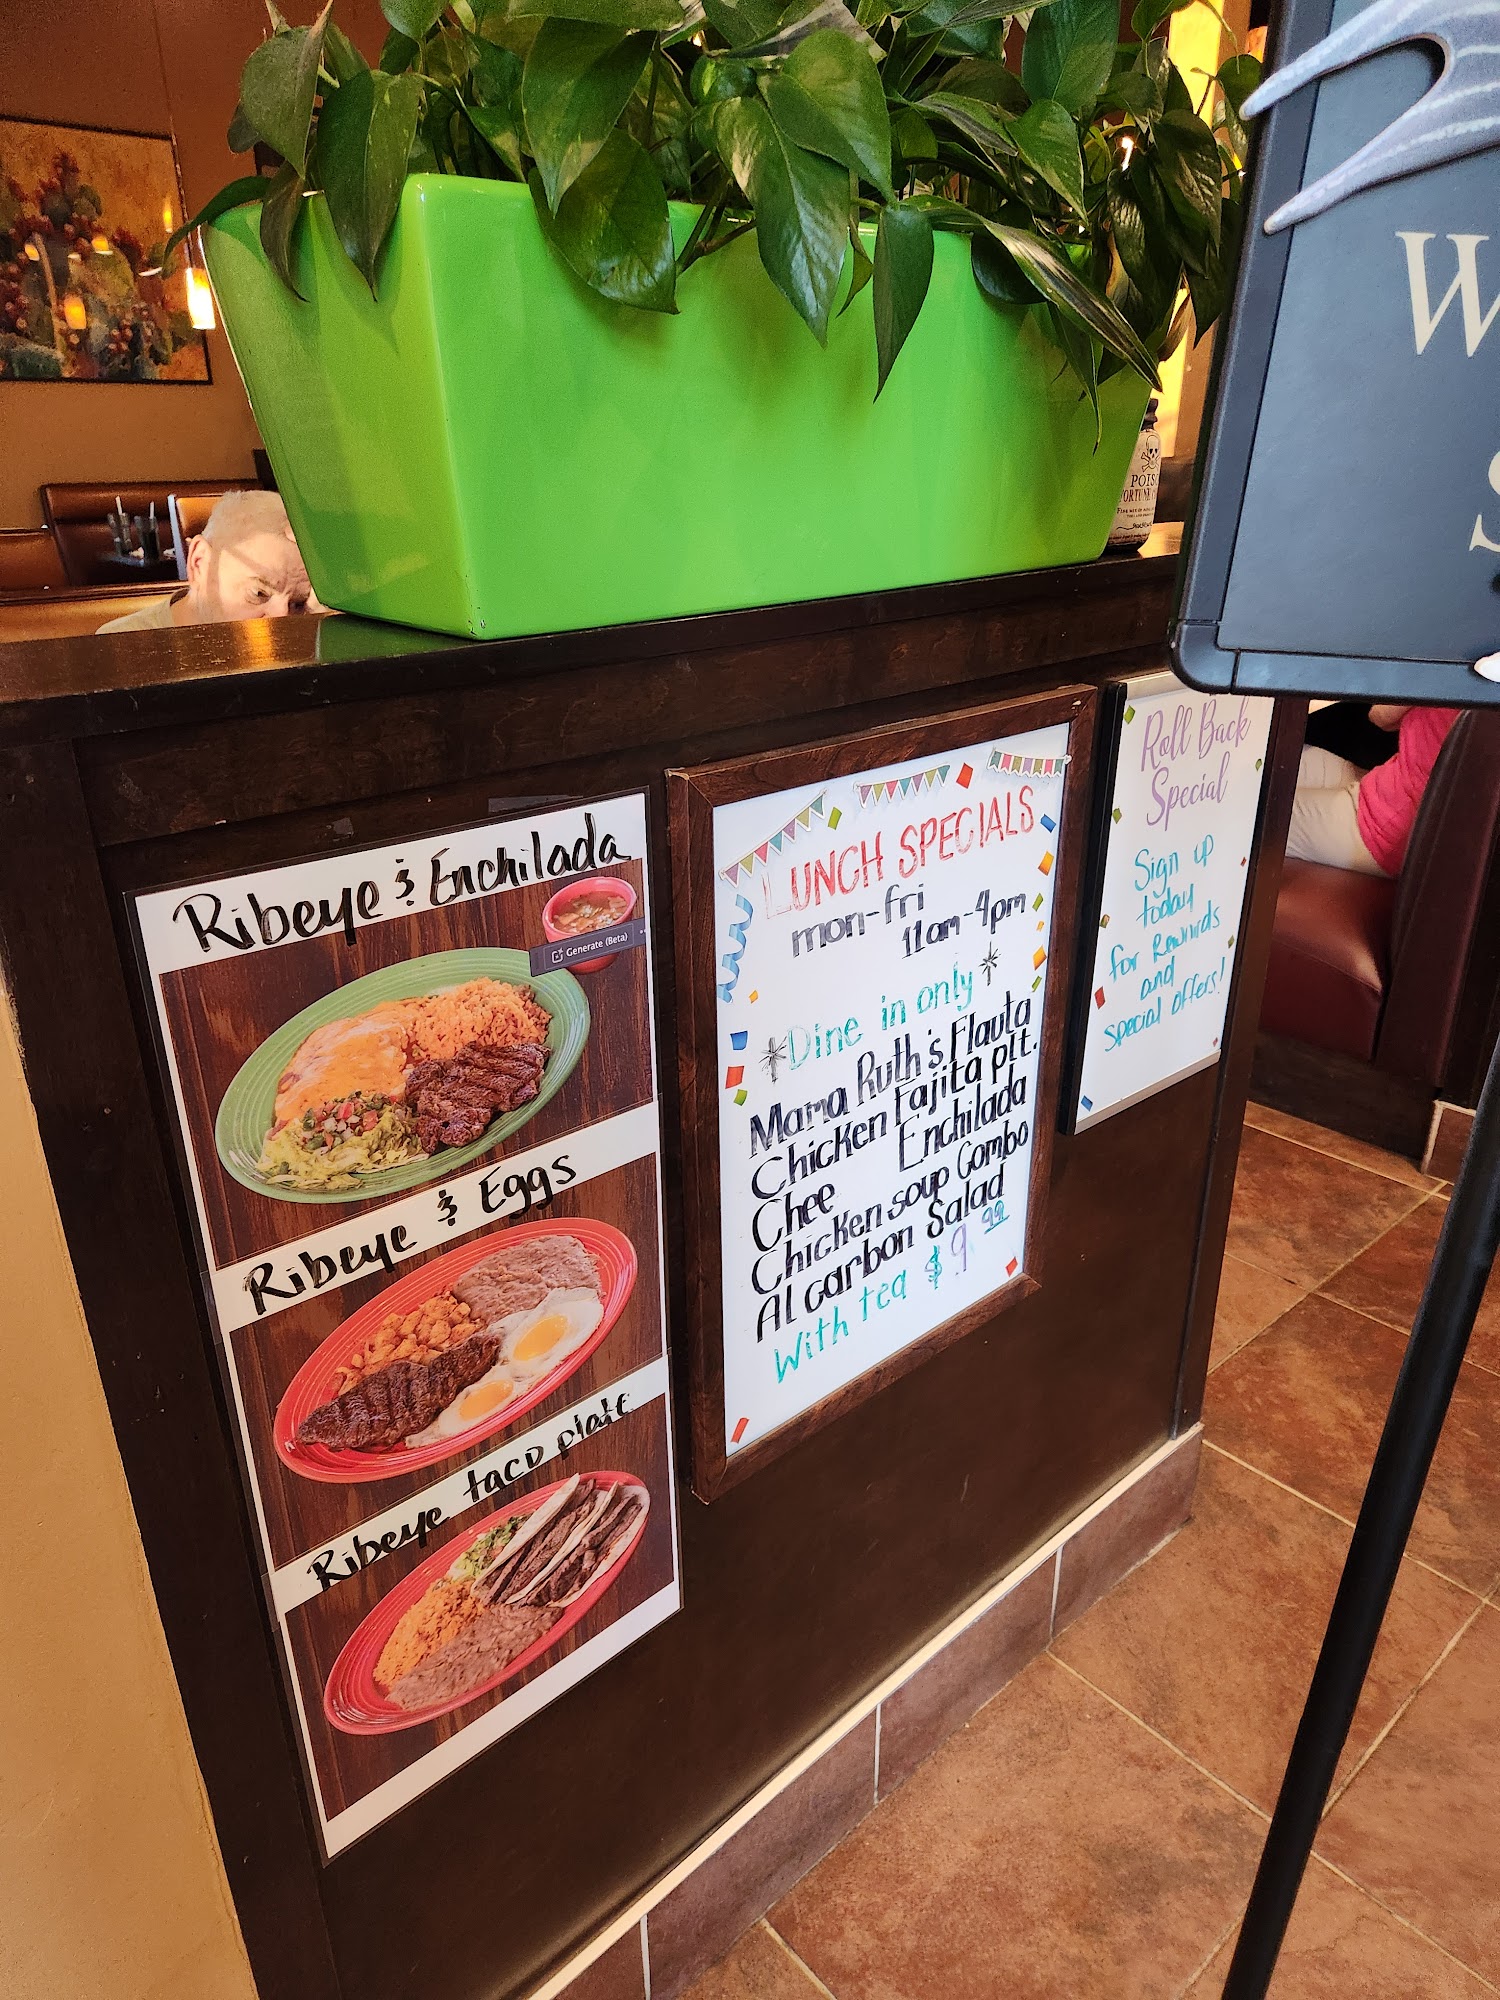 Ribeye & Enchilada
Generate (Beta)
Ribeye & Eggs
Ribeye taco platt
LUNCH SPECIALS
mon-fri
11am-4pm
*Dine in only*
Mama Ruth's Flauta
Chicken Fajita plt.
Chee Enchilada
Chicken soup Combo
Al carbon Salad
With tea $9.99
Roll Back
Special
Sign up
today
for Rewards
and
special offers!
POIS
W
S